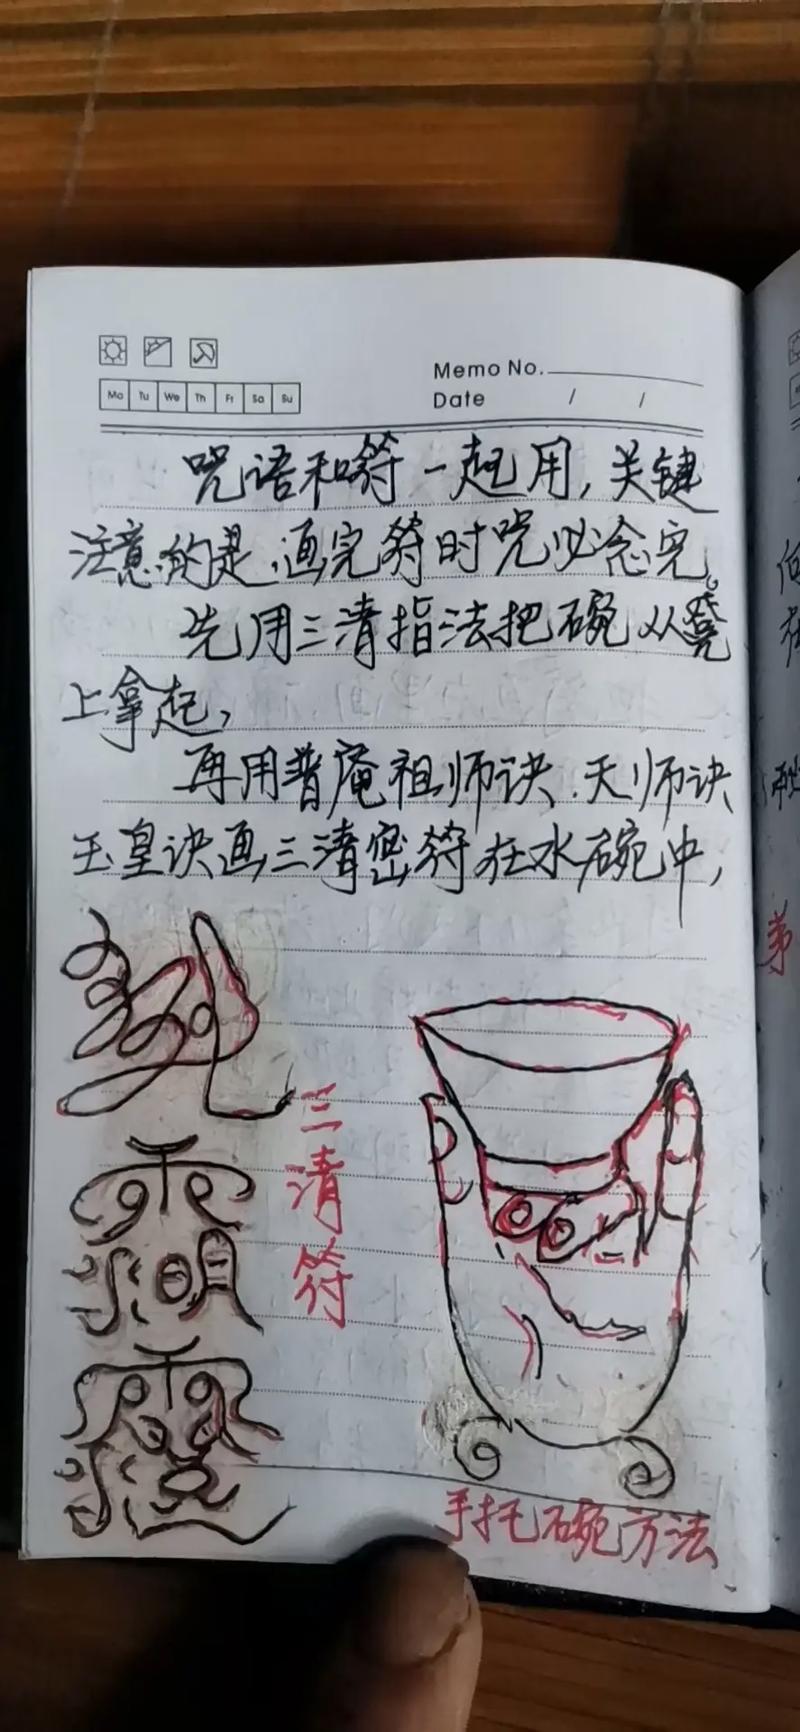 Memo No.
Mo Tu We Th Fr Sa Su
Date / /
咒语和符一起用,关键
注意的是,画完符时咒必念完。
先用三清指法把碗从凳
上拿起,
再用普庵祖师诀.天师诀
玉皇诀画三清密符在水碗中,
三清符
手托碗方法
弟